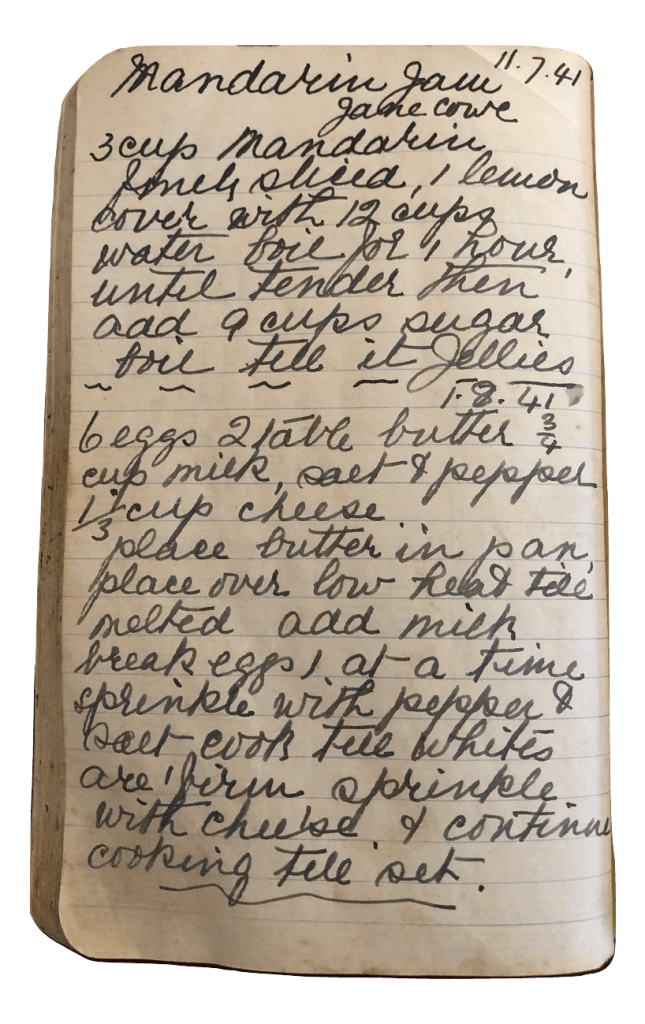 Mandarin Jam 11.7.41
Jane Cowe
3 cup Mandarin
finely sliced, 1 lemon
cover with 12 cups
water boil for 1 hour,
until tender then
add 9 cups sugar
boil till it Jellies
1.8.41
6 eggs 2 table butter 3/4
cup milk, salt & pepper
1/3 cup cheese
place butter in pan,
place over low heat till
melted add milk
break eggs 1 at a time
sprinkle with pepper &
salt cook till whites
are firm sprinkle
with cheese & continue
cooking till set.